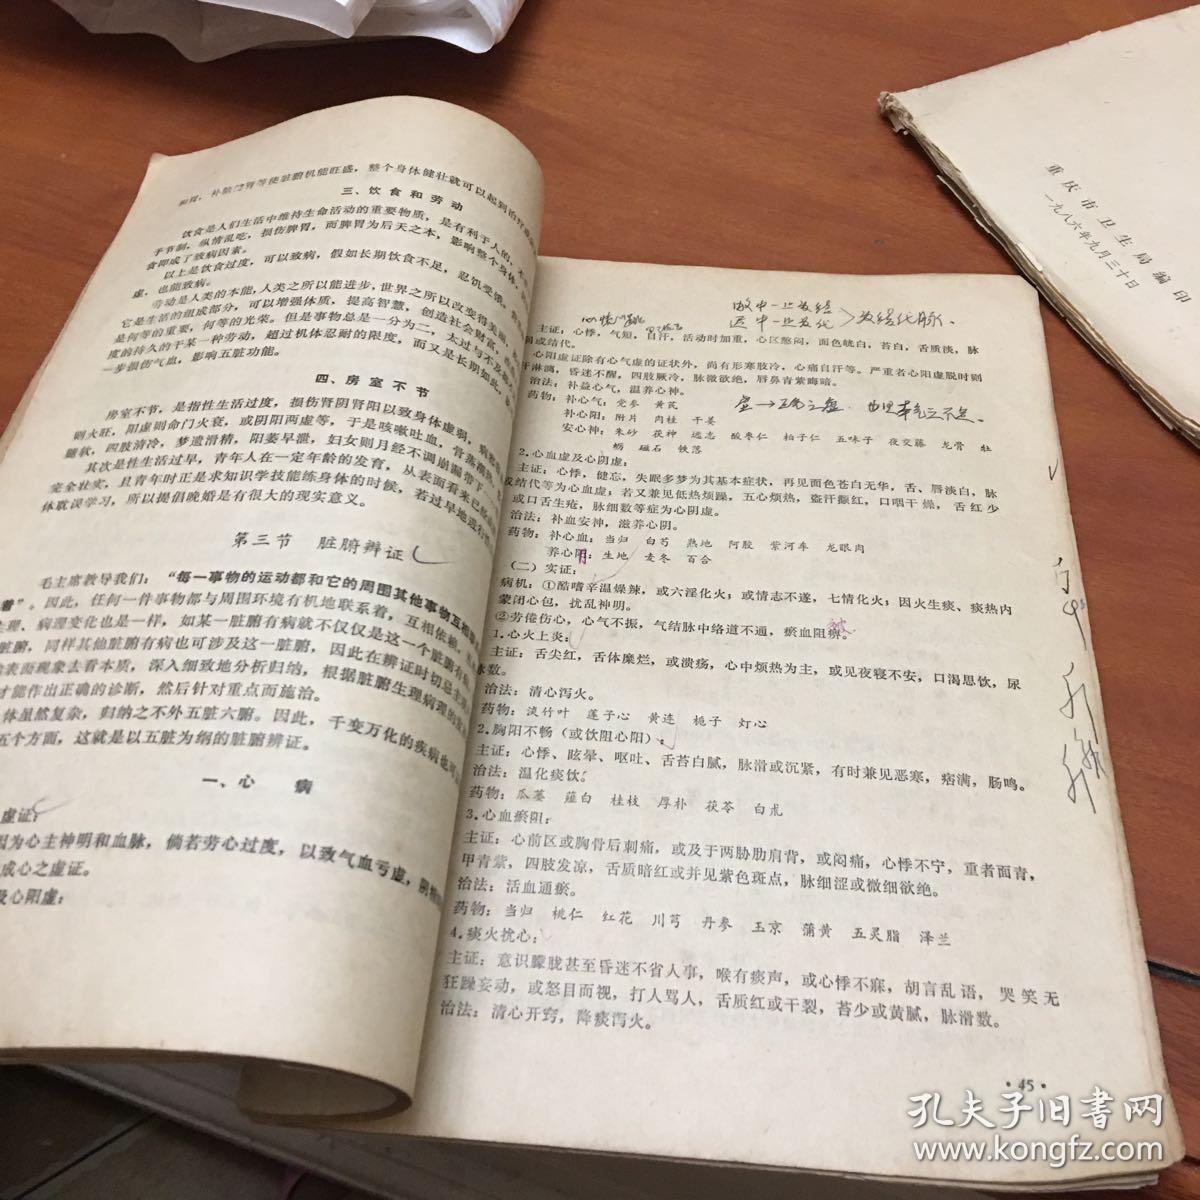 和胃，补脏门肾等使脏腑机能旺盛，整个身体健壮就可以起到治疗
三、饮食和劳动
饮食是人们生活中维持生命活动的重要物质，是有利于人的，
于节制，纵情乱吃，损伤脾胃，而脾胃为后天之本，影响整个身体，
食即成了致病因素。
以上是饮食过度，可以致病，假如长期饮食不足，忍饥受饿，
虚，也能致病。
劳动是人类的本能，人类之所以能进步，世界之所以改变得美丽，
它是生活的组成部分，可以增强体质，提高智慧，创造社会财富，
是何等的重要，何等的光荣。但是事物总是一分为二，太过与不及
度的持久的干某一种劳动，超过机体忍耐的限度，而又是长期如此，
一步损伤气血，影响五脏功能。
四、房室不节
房室不节，是指性生活过度，损伤肾阴肾阳以致身体虚弱，
则火旺，阳虚则命门火衰，或阴阳两虚等，于是咳嗽吐血，骨蒸潮
腿软，四肢清冷，梦遗滑精，阳萎早泄，妇女则月经不调崩漏带下，
其次是性生活过早，青年人在一定年龄的发育，从表面看来已经
完全壮实，且青年时正是求知识学技能练身体的时候，若过早地
体耽误学习，所以提倡晚婚是有很大的现实意义。
第三节 脏腑辩证
毛主席教导我们：“每一事物的运动都和它的周围其他事物互相
着”。因此，任何一件事物都与周围环境有机地联系着，互相依赖，
生理、病理变化也是一样，如某一脏腑有病就不仅仅是这一个脏腑有
脏腑，同样其他脏腑有病也可涉及这一脏腑，因此在辨证时切忌
表面现象去看本质，深入细致地分析归纳，根据脏腑生理病理的
才能作出正确的诊断，然后针对重点而施治。
体虽然复杂，归纳之不外五脏六腑。因此，千变万化的疾病也可
五个方面，这就是以五脏为纲的脏腑辨证。
一、心 病
虚证：
因为心主神明和血脉，倘若劳心过度，以致气血亏虚，
成心之虚证。
心阳虚：
主证：心悸，气短，自汗，活动时加重，心区憋闷，面色㿠白，苔白，舌质淡，脉
或结代。
心阳虚证除有心气虚的证状外，尚有形寒肢冷，心痛自汗等。严重者心阳虚脱时则
汗淋漓，昏迷不醒，四肢厥冷，脉微欲绝，唇鼻青紫晦暗。
治法：补益心气，温养心神。
药物：补心气：党参 黄芪
补心阳：附片 肉桂 干姜
安心神：朱砂 茯神 远志 酸枣仁 柏子仁 五味子 夜交藤 龙骨 牡
蛎 磁石 铁落
2.心血虚及心阴虚：
主证：心悸，健忘，失眠多梦为其基本症状，再见面色苍白无华，舌、唇淡白，脉
或结代等为心血虚；若又兼见低热烦躁，五心烦热，盗汗颧红，口咽干燥，舌红少
或口舌生疮，脉细数等症为心阴虚。
治法：补血安神，滋养心阴。
药物：补心血：当归 白芍 熟地 阿胶 紫河车 龙眼肉
养心阴：生地 麦冬 百合
（二）实证：
病机：①酷嗜辛温燥辣，或六淫化火；或情志不遂，七情化火；因火生痰，痰热内
蒙闭心包，扰乱神明。
②劳倦伤心，心气不振，气结脉中络道不通，瘀血阻痹。
1.心火上炎：
主证：舌尖红，舌体糜烂，或溃疡，心中烦热为主，或见夜寝不安，口渴思饮，尿
数。
治法：清心泻火。
药物：淡竹叶 莲子心 黄连 栀子 灯心
2.胸阳不畅（或饮阻心阳）
主证：心悸、眩晕、呕吐、舌苔白腻，脉滑或沉紧，有时兼见恶寒，痞满，肠鸣。
治法：温化痰饮。
药物：瓜蒌 薤白 桂枝 厚朴 茯苓 白朮
3.心血瘀阻：
主证：心前区或胸骨后刺痛，或及于两胁肋肩背，或闷痛，心悸不宁，重者面青，
甲青紫，四肢发凉，舌质暗红或并见紫色斑点，脉细涩或微细欲绝。
治法：活血通瘀。
药物：当归 桃仁 红花 川芎 丹参 玉京 蒲黄 五灵脂 泽兰
4.痰火扰心：
主证：意识朦胧甚至昏迷不省人事，喉有痰声，或心悸不寐，胡言乱语，哭笑无
狂躁妄动，或怒目而视，打人骂人，舌质红或干裂，苔少或黄腻，脉滑数。
治法：清心开窍，降痰泻火。
·45·
重庆市卫生局编印
一九八六年九月三十日
孔夫子旧书网
www.kongfz.com